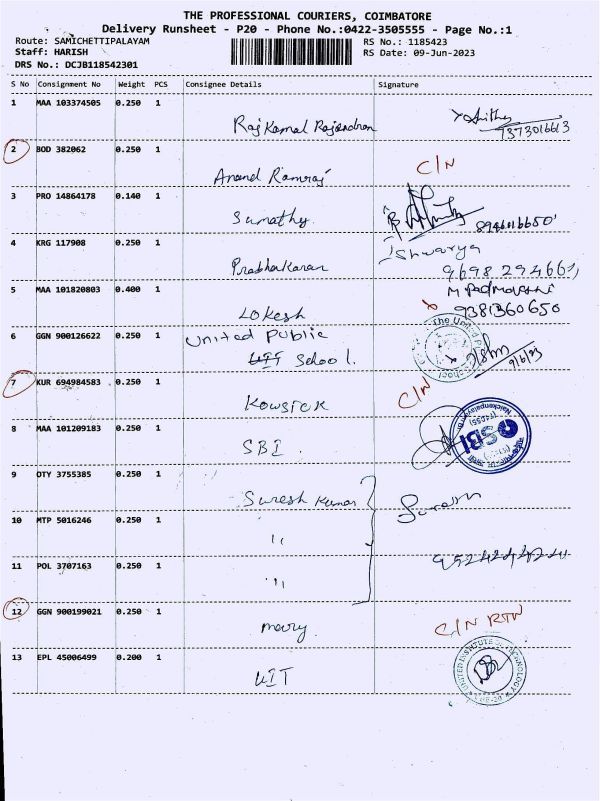 THE PROFESSIONAL COURIERS, COIMBATORE
Delivery Runsheet - P20 - Phone No.:0422-3505555 - Page No.:1
Route: SAMICHETTIPALAYAM RS No.: 1185423
Staff: HARISH RS Date: 09-Jun-2023
DRS No.: DCJB118542301
S No Consignment No Weight PCS Consignee Details Signature
1 MAA 103374505 0.250 1 Raj Kamal Rajendran 7373016613
2 BOD 382062 0.250 1 Anand Ramraj C/N
3 PRO 14864178 0.140 1 Sumathy
4 KRG 117908 0.250 1 Prabhakaran Ishwarya
5 MAA 101820803 0.400 1 Lokesh 9381360650
6 GGN 900126622 0.250 1 United Public
UIT School. 9/6/23
7 KUR 694984583 0.250 1 Kowsick C/N
8 MAA 101209183 0.250 1 SBI. SBI
9 OTY 3755385 0.250 1 Suresh Kumar Suresh
10 MTP 5016246 0.250 1 "
11 POL 3707163 0.250 1 "
12 GGN 900199021 0.250 1 mary. C/N RTN
13 EPL 45006499 0.200 1 UIT UNITED INSTITUTE OF TECHNOLOGY